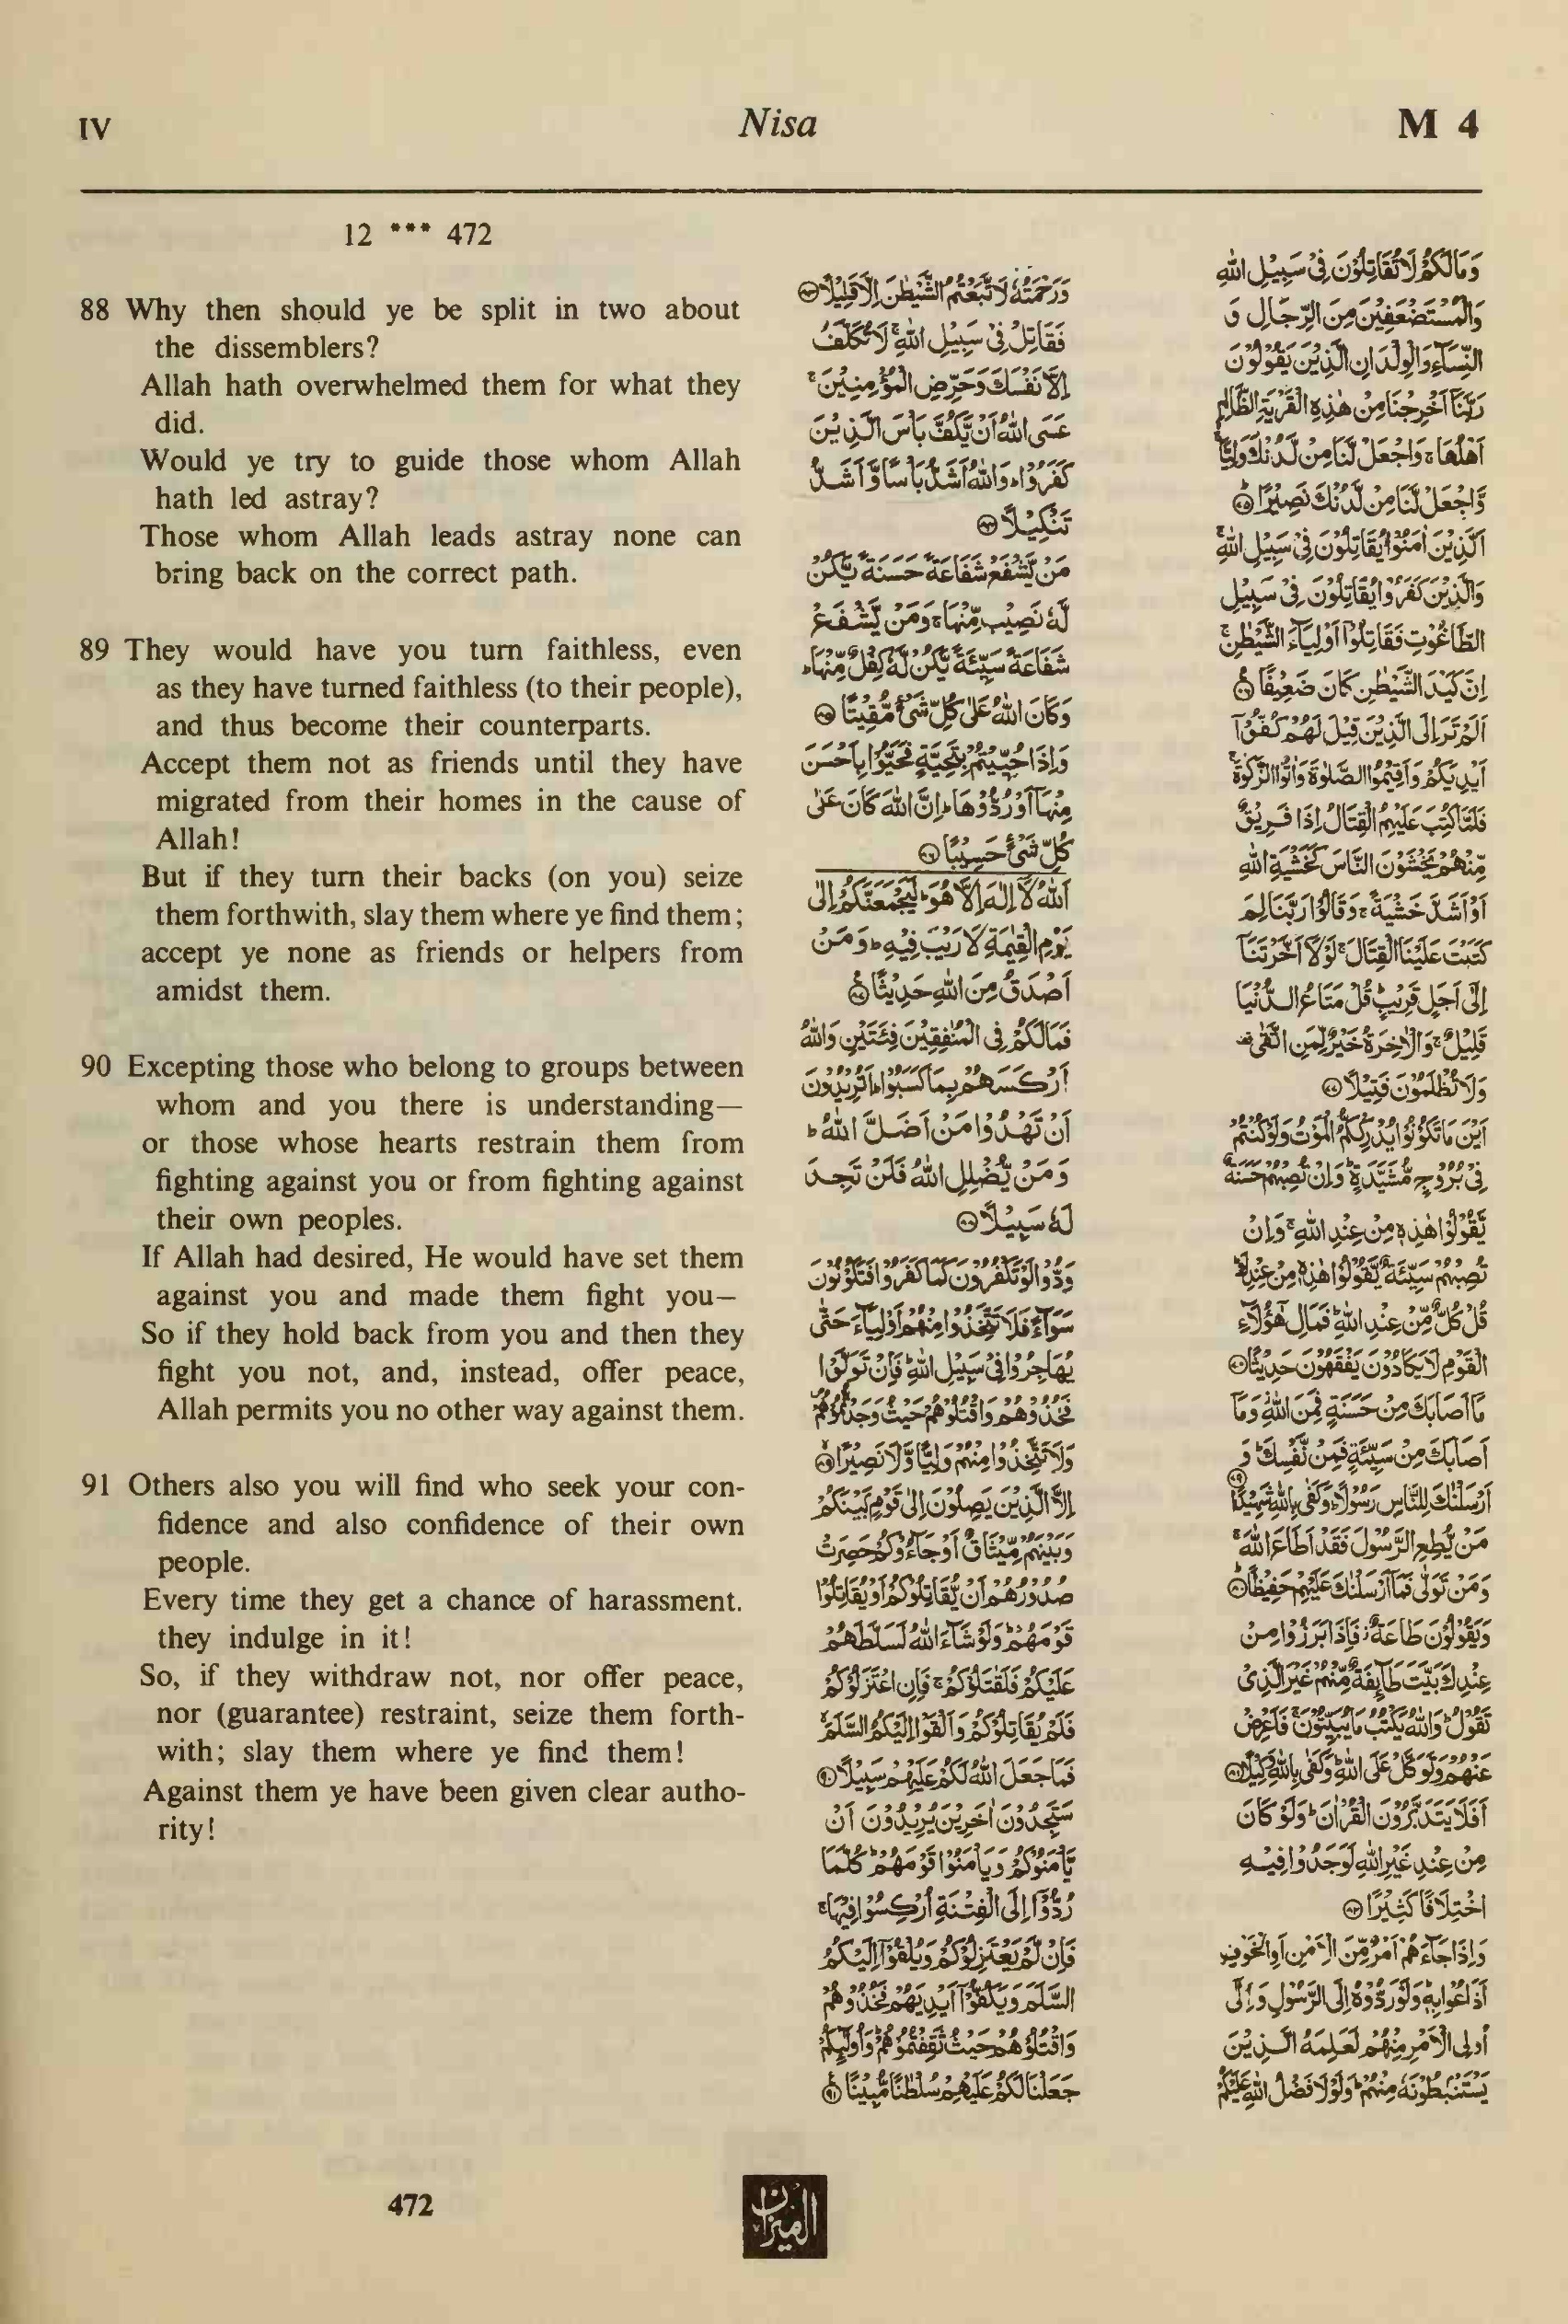 IV
Nisa
M 4
12 *** 472
88 Why then should ye be split in two about
the dissemblers?
Allah hath overwhelmed them for what they
did.
Would ye try to guide those whom Allah
hath led astray?
Those whom Allah leads astray none can
bring back on the correct path.
89 They would have you turn faithless, even
as they have turned faithless (to their people),
and thus become their counterparts.
Accept them not as friends until they have
migrated from their homes in the cause of
Allah!
But if they turn their backs (on you) seize
them forthwith, slay them where ye find them;
accept ye none as friends or helpers from
amidst them.
90 Excepting those who belong to groups between
whom and you there is understanding—
or those whose hearts restrain them from
fighting against you or from fighting against
their own peoples.
If Allah had desired, He would have set them
against you and made them fight you—
So if they hold back from you and then they
fight you not, and, instead, offer peace,
Allah permits you no other way against them.
91 Others also you will find who seek your con-
fidence and also confidence of their own
people.
Every time they get a chance of harassment.
they indulge in it!
So, if they withdraw not, nor offer peace,
nor (guarantee) restraint, seize them forth-
with; slay them where ye find them!
Against them ye have been given clear autho-
rity!
وَمَا لَكُمْ لَا تُقَاتِلُوْنَ فِيْ سَبِيْلِ اللّٰهِ
وَالْمُسْتَضْعَفِيْنَ مِنَ الرِّجَالِ وَ
النِّسَآءِ وَالْوِلْدَانِ الَّذِيْنَ يَقُوْلُوْنَ
رَبَّنَآ اَخْرِجْنَا مِنْ هٰذِهِ الْقَرْيَةِ الظَّالِمِ
اَهْلُهَا ۚ وَاجْعَلْ لَّنَا مِنْ لَّدُنْكَ وَلِيًّا
وَّاجْعَلْ لَّنَا مِنْ لَّدُنْكَ نَصِيْرًا ۝
اَلَّذِيْنَ اٰمَنُوْا يُقَاتِلُوْنَ فِيْ سَبِيْلِ اللّٰهِ ۚ
وَالَّذِيْنَ كَفَرُوْا يُقَاتِلُوْنَ فِيْ سَبِيْلِ
الطَّاغُوْتِ فَقَاتِلُوْٓا اَوْلِيَآءَ الشَّيْطٰنِ ۚ
اِنَّ كَيْدَ الشَّيْطٰنِ كَانَ ضَعِيْفًا ۝
اَلَمْ تَرَ اِلَى الَّذِيْنَ قِيْلَ لَهُمْ كُفُّوْٓا
اَيْدِيَكُمْ وَاَقِيْمُوا الصَّلٰوةَ وَاٰتُوا الزَّكٰوةَ ۚ
فَلَمَّا كُتِبَ عَلَيْهِمُ الْقِتَالُ اِذَا فَرِيْقٌ
مِّنْهُمْ يَخْشَوْنَ النَّاسَ كَخَشْيَةِ اللّٰهِ
اَوْ اَشَدَّ خَشْيَةً ۚ وَقَالُوْا رَبَّنَا لِمَ
كَتَبْتَ عَلَيْنَا الْقِتَالَ ۚ لَوْلَآ اَخَّرْتَنَآ
اِلٰٓى اَجَلٍ قَرِيْبٍ ؕ قُلْ مَتَاعُ الدُّنْيَا
قَلِيْلٌ ۚ وَالْاٰخِرَةُ خَيْرٌ لِّمَنِ اتَّقٰى
وَلَا تُظْلَمُوْنَ فَتِيْلًا ۝
اَيْنَ مَا تَكُوْنُوْا يُدْرِكْكُّمُ الْمَوْتُ وَلَوْ كُنْتُمْ
فِيْ بُرُوْجٍ مُّشَيَّدَةٍ ؕ وَاِنْ تُصِبْهُمْ حَسَنَةٌ
يَّقُوْلُوْا هٰذِهٖ مِنْ عِنْدِ اللّٰهِ ۚ وَاِنْ
تُصِبْهُمْ سَيِّئَةٌ يَّقُوْلُوْا هٰذِهٖ مِنْ عِنْدِكَ ؕ
قُلْ كُلٌّ مِّنْ عِنْدِ اللّٰهِ ؕ فَمَالِ هٰٓؤُلَآءِ
الْقَوْمِ لَا يَكَادُوْنَ يَفْقَهُوْنَ حَدِيْثًا ۝
مَآ اَصَابَكَ مِنْ حَسَنَةٍ فَمِنَ اللّٰهِ ؗ وَمَآ
اَصَابَكَ مِنْ سَيِّئَةٍ فَمِنْ نَّفْسِكَ ؕ وَ
اَرْسَلْنٰكَ لِلنَّاسِ رَسُوْلًا ؕ وَكَفٰى بِاللّٰهِ شَهِيْدًا ۝
مَنْ يُّطِعِ الرَّسُوْلَ فَقَدْ اَطَاعَ اللّٰهَ ۚ
وَمَنْ تَوَلّٰى فَمَآ اَرْسَلْنٰكَ عَلَيْهِمْ حَفِيْظًا ۝
وَيَقُوْلُوْنَ طَاعَةٌ ؗ فَاِذَا بَرَزُوْا مِنْ
عِنْدِكَ بَيَّتَ طَآئِفَةٌ مِّنْهُمْ غَيْرَ الَّذِيْ
تَقُوْلُ ؕ وَاللّٰهُ يَكْتُبُ مَا يُبَيِّتُوْنَ ۚ فَاَعْرِضْ
عَنْهُمْ وَتَوَكَّلْ عَلَى اللّٰهِ ؕ وَكَفٰى بِاللّٰهِ وَكِيْلًا ۝
اَفَلَا يَتَدَبَّرُوْنَ الْقُرْاٰنَ ؕ وَلَوْ كَانَ
مِنْ عِنْدِ غَيْرِ اللّٰهِ لَوَجَدُوْا فِيْهِ
اخْتِلَافًا كَثِيْرًا ۝
وَاِذَا جَآءَهُمْ اَمْرٌ مِّنَ الْاَمْنِ اَوِ الْخَوْفِ
اَذَاعُوْا بِهٖ ؕ وَلَوْ رَدُّوْهُ اِلَى الرَّسُوْلِ وَاِلٰٓى
اُولِى الْاَمْرِ مِنْهُمْ لَعَلِمَهُ الَّذِيْنَ
يَسْتَنْۢبِطُوْنَهٗ مِنْهُمْ ؕ وَلَوْلَا فَضْلُ اللّٰهِ عَلَيْكُمْ
وَرَحْمَتُهٗ لَاتَّبَعْتُمُ الشَّيْطٰنَ اِلَّا قَلِيْلًا ۝
فَقَاتِلْ فِيْ سَبِيْلِ اللّٰهِ ۚ لَا تُكَلَّفُ
اِلَّا نَفْسَكَ وَحَرِّضِ الْمُؤْمِنِيْنَ ۚ
عَسَى اللّٰهُ اَنْ يَّكُفَّ بَاْسَ الَّذِيْنَ
كَفَرُوْا ؕ وَاللّٰهُ اَشَدُّ بَاْسًا وَّاَشَدُّ
تَنْكِيْلًا ۝
مَنْ يَّشْفَعْ شَفَاعَةً حَسَنَةً يَّكُنْ
لَّهٗ نَصِيْبٌ مِّنْهَا ۚ وَمَنْ يَّشْفَعْ
شَفَاعَةً سَيِّئَةً يَّكُنْ لَّهٗ كِفْلٌ مِّنْهَا ؕ
وَكَانَ اللّٰهُ عَلٰى كُلِّ شَيْءٍ مُّقِيْتًا ۝
وَاِذَا حُيِّيْتُمْ بِتَحِيَّةٍ فَحَيُّوْا بِاَحْسَنَ
مِنْهَآ اَوْ رُدُّوْهَا ؕ اِنَّ اللّٰهَ كَانَ عَلٰى
كُلِّ شَيْءٍ حَسِيْبًا ۝
اَللّٰهُ لَآ اِلٰهَ اِلَّا هُوَ ؕ لَيَجْمَعَنَّكُمْ اِلٰى
يَوْمِ الْقِيٰمَةِ لَا رَيْبَ فِيْهِ ؕ وَمَنْ
اَصْدَقُ مِنَ اللّٰهِ حَدِيْثًا ۝
فَمَا لَكُمْ فِى الْمُنٰفِقِيْنَ فِئَتَيْنِ وَاللّٰهُ
اَرْكَسَهُمْ بِمَا كَسَبُوْا ؕ اَتُرِيْدُوْنَ
اَنْ تَهْدُوْا مَنْ اَضَلَّ اللّٰهُ ؕ
وَمَنْ يُّضْلِلِ اللّٰهُ فَلَنْ تَجِدَ
لَهٗ سَبِيْلًا ۝
وَدُّوْا لَوْ تَكْفُرُوْنَ كَمَا كَفَرُوْا فَتَكُوْنُوْنَ
سَوَآءً فَلَا تَتَّخِذُوْا مِنْهُمْ اَوْلِيَآءَ حَتّٰى
يُهَاجِرُوْا فِيْ سَبِيْلِ اللّٰهِ ؕ فَاِنْ تَوَلَّوْا
فَخُذُوْهُمْ وَاقْتُلُوْهُمْ حَيْثُ وَجَدْتُّمُوْهُمْ
وَلَا تَتَّخِذُوْا مِنْهُمْ وَلِيًّا وَّلَا نَصِيْرًا ۝
اِلَّا الَّذِيْنَ يَصِلُوْنَ اِلٰى قَوْمٍۭ بَيْنَكُمْ
وَبَيْنَهُمْ مِّيْثَاقٌ اَوْ جَآءُوْكُمْ حَصِرَتْ
صُدُوْرُهُمْ اَنْ يُّقَاتِلُوْكُمْ اَوْ يُقَاتِلُوْا
قَوْمَهُمْ ؕ وَلَوْ شَآءَ اللّٰهُ لَسَلَّطَهُمْ
عَلَيْكُمْ فَلَقٰتَلُوْكُمْ ۚ فَاِنِ اعْتَزَلُوْكُمْ
فَلَمْ يُقَاتِلُوْكُمْ وَاَلْقَوْا اِلَيْكُمُ السَّلَمَ
فَمَا جَعَلَ اللّٰهُ لَكُمْ عَلَيْهِمْ سَبِيْلًا ۝
سَتَجِدُوْنَ اٰخَرِيْنَ يُرِيْدُوْنَ اَنْ
يَّاْمَنُوْكُمْ وَيَاْمَنُوْا قَوْمَهُمْ ؕ كُلَّمَا
رُدُّوْٓا اِلَى الْفِتْنَةِ اُرْكِسُوْا فِيْهَا ۚ
فَاِنْ لَّمْ يَعْتَزِلُوْكُمْ وَيُلْقُوْٓا اِلَيْكُمُ
السَّلَمَ وَيَكُفُّوْٓا اَيْدِيَهُمْ فَخُذُوْهُمْ
وَاقْتُلُوْهُمْ حَيْثُ ثَقِفْتُمُوْهُمْ ؕ وَاُولٰٓئِكُمْ
جَعَلْنَا لَكُمْ عَلَيْهِمْ سُلْطٰنًا مُّبِيْنًا ۝
472
الميزان